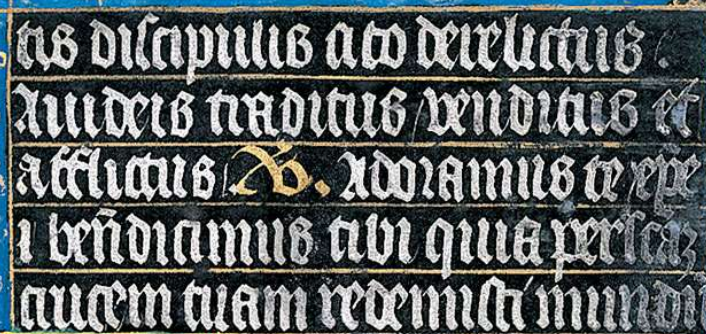 tis discipulis cito derelictus.
A iudeis traditus / venditus et
afflictus. V. Adoramus te xp̄e
i ben̄dicimus tibi quia per scaz
crucem tuam redemisti mundū